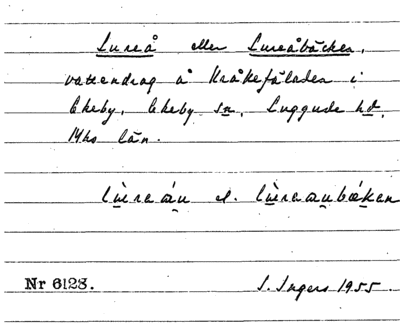 Lureå eller Lureåbäcken,
vattendrag å Kråkefäladen i
Ekeby, Ekeby sn, Luggude hd,
Mhs län.
lùreán el. lùreanbækan
Nr 6128.
I. Ingers 1955.